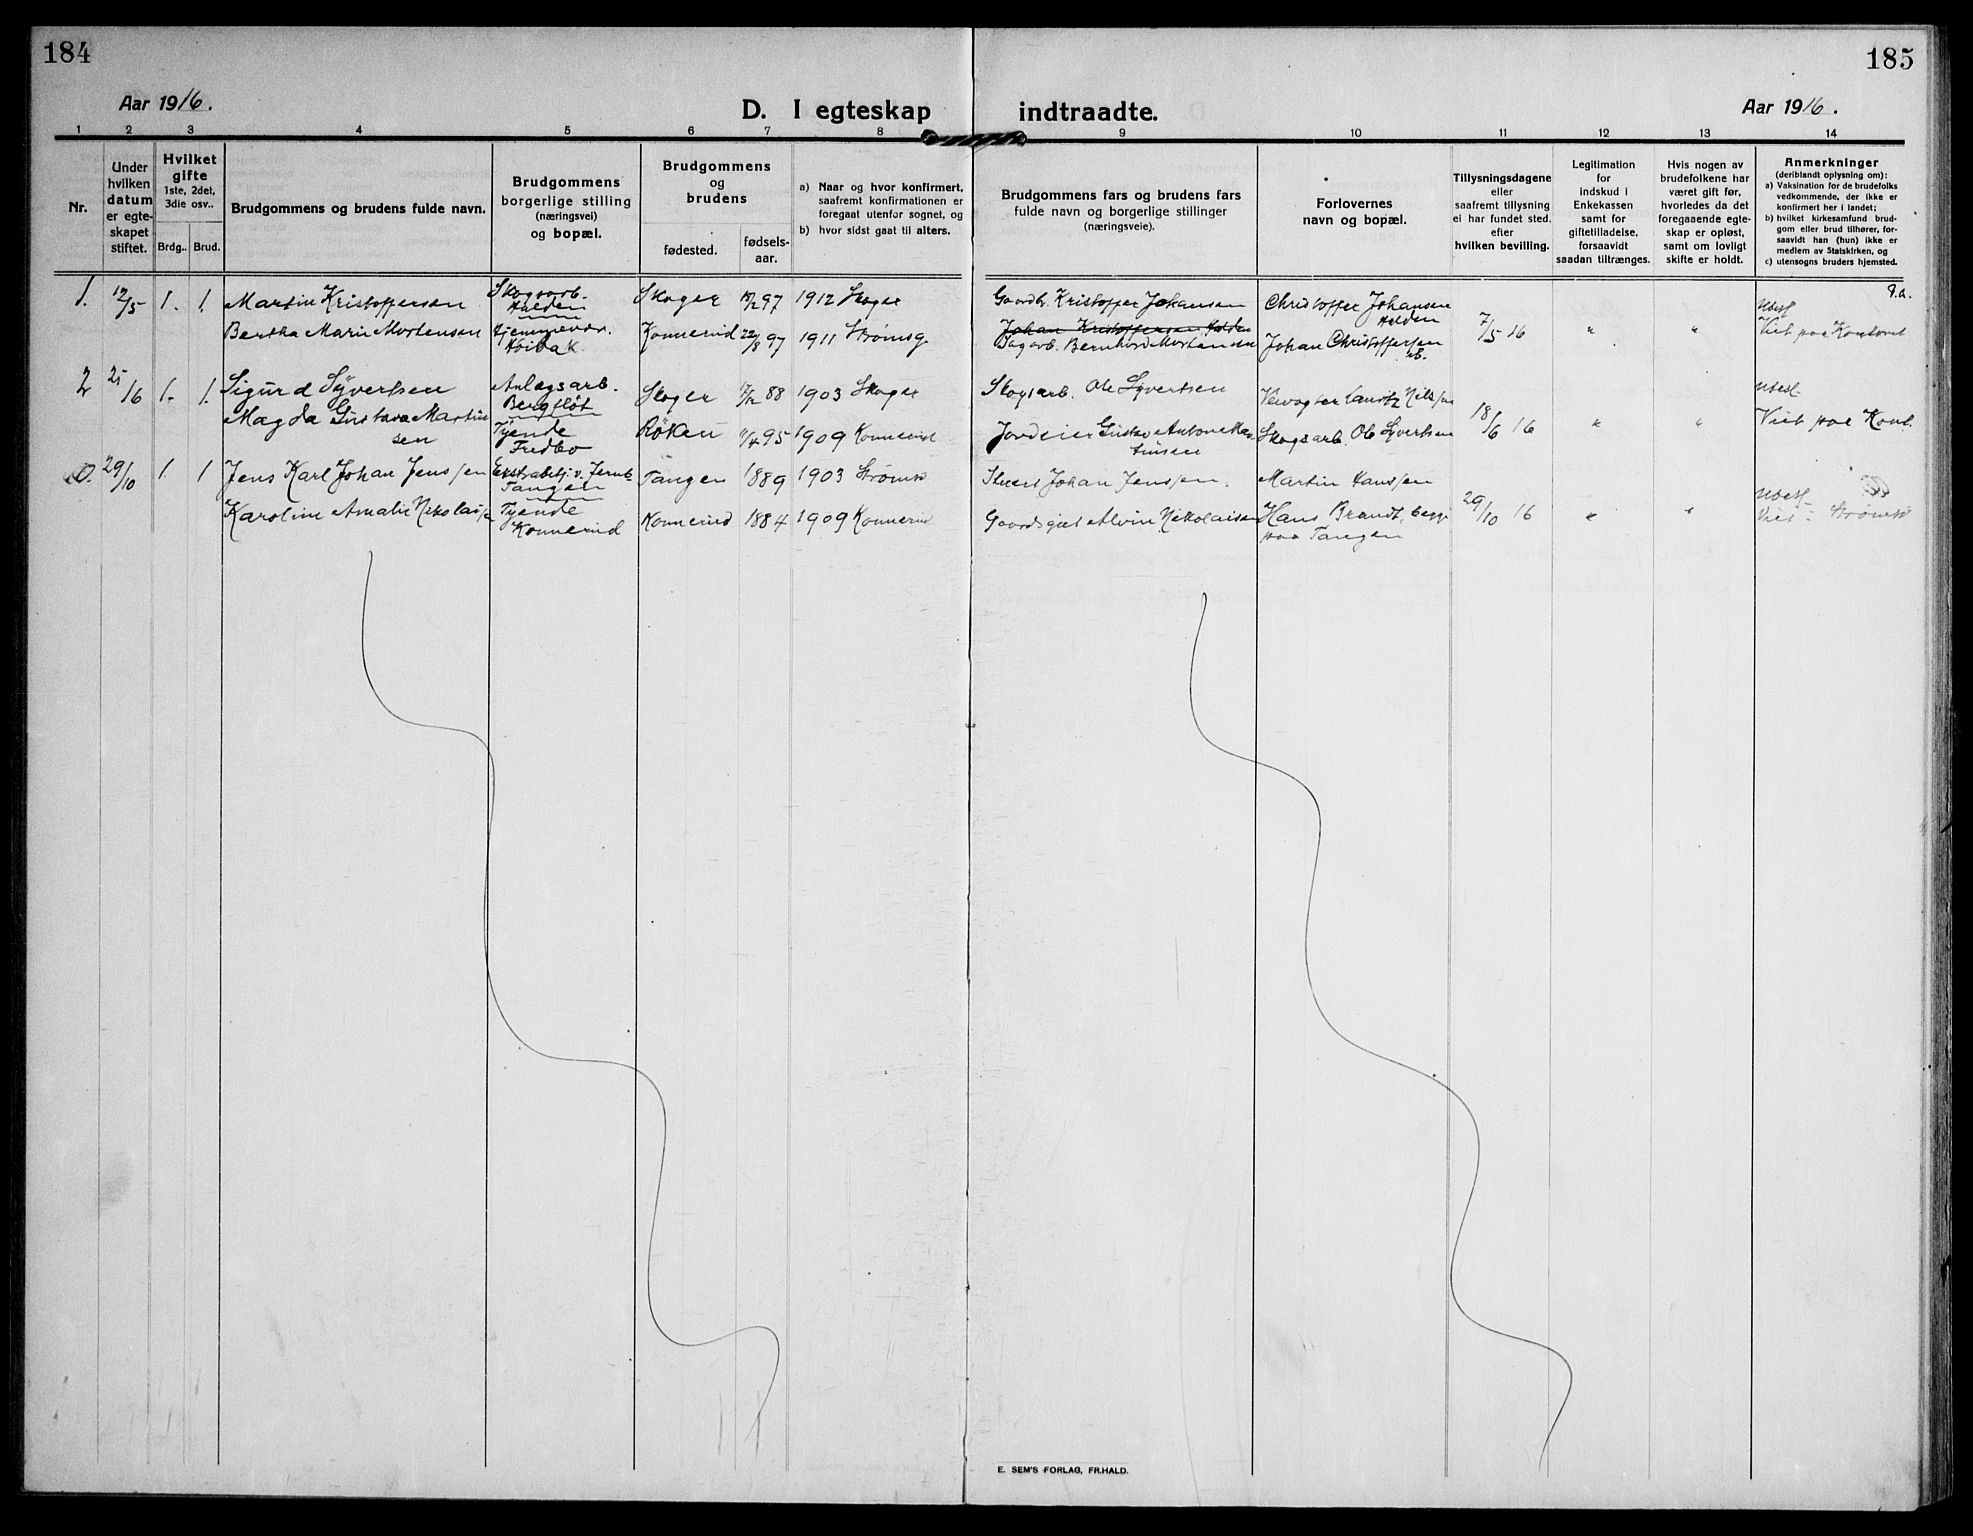 184
185
Aar 1916.
D. I egteskap indtraadte.
Aar 1916.
1 2 3 4 5 6 7 8 9 10 11 12 13 14
Nr.
Under
hvilken
datum
er egte-
skapet
stiftet.
Hvilket
gifte
1ste, 2det,
3die osv..
Brdg.. Brud.
Brudgommens og brudens fulde navn.
Brudgommens
borgerlige stilling
(næringsvei)
og bopæl.
Brudgommens
og
brudens
fødested.
fødsels-
aar.
a) Naar og hvor konfirmert,
saafremt konfirmationen er
foregaat utenfor sognet, og
b) hvor sidst gaat til alters.
Brudgommens fars og brudens fars
fulde navn og borgerlige stillinger
(næringsveie).
Forlovernes
navn og bopæl.
Tillysningsdagene
eller
saafremt tillysning
ei har fundet sted.
efter
hvilken bevilling.
Legitimation
for
indskud i
Enkekassen
samt for
giftetilladelse,
forsaavidt
saadan tiltrænges.
Hvis nogen av
brudefolkene har
været gift før,
hvorledes da det
foregaaende egte-
skap er opløst,
samt om lovligt
skifte er holdt.
Anmerkninger
(deriblandt oplysning om):
a) Vaksination for de brudefolks
vedkommende, der ikke er
konfirmert her i landet;
b) hvilket kirkesamfund brud-
gom eller brud tilhører, for-
saavidt han (hun) ikke er
medlem av Statskirken, og
c) utensogns bruders hjemsted.
1. 12/5 1. 1. Martin Kristoffersen Skogsarb. Skoger 97 1912 Skoger Gaardbr. Kristoffer Johansen Christoffer Johansen
Halden Halden
Bertha Marie Mortensen Hjemmevær. Konnerud 22/8 97 1911 Strømsg. Johan Kristoffersen Halden 7/5 16 " " Viet paa Kontoret
Bernhard Mortensen Johan Christoffersen
2 25/6 1. 1. Sigurd Syvertsen Anlegsarb. Skoger 88 1903 Skoger Skogsarb. Ole Syvertsen Lauritz Nilssen
Bergfløt
Magda Gustava Martin Tjende Røken 95 1909 Konnerud Jordeier Gustav Anton Mar- Skogsarb. Ole Syvertsen 18/6 16 " " Viet paa Kont.
sen Fredbo tinsen
29/10 1. 1 Jens Karl Johan Jenssen Tangen 1889 1903 Strømsø Johan Jenssen. Martin Hanssen
Tangen
Karoline Amalie Nikolaisen Tjende Konnerud 1884 1909 Konnerud Alvin Nikolaisen Hans Brandt, begge 29/10 16 " " Viet i Strømsø
Konnerud paa Tangen
E. SEM'S FORLAG, FR.HALD.